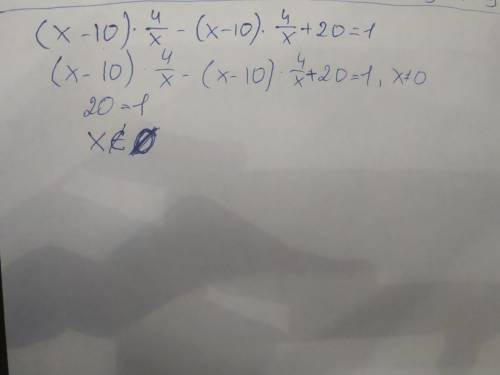 (x-10)·4/x-(x-10)·4/x+20=1
(x-10)·4/x-(x-10)·4/x+20=1, x≠0
20=1
x∉∅